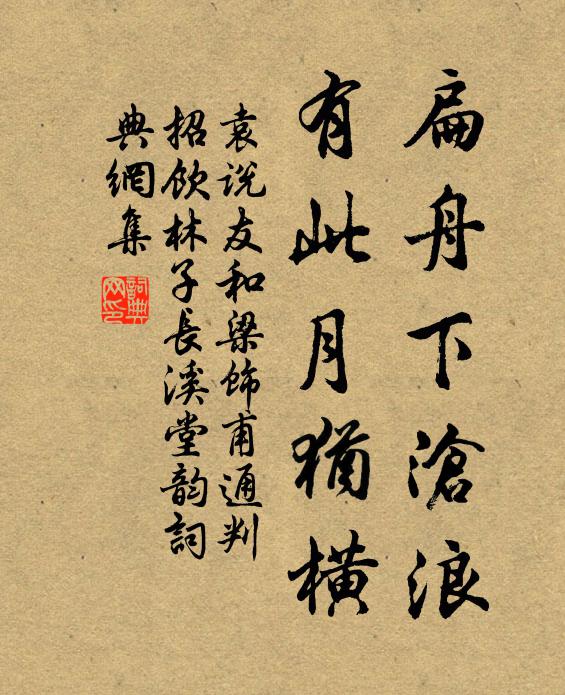 扁舟下滄浪
有此月猶橫
袁说友和梁飾甫通判
招飲林子長溪堂韵詞
典網集
詞典网印